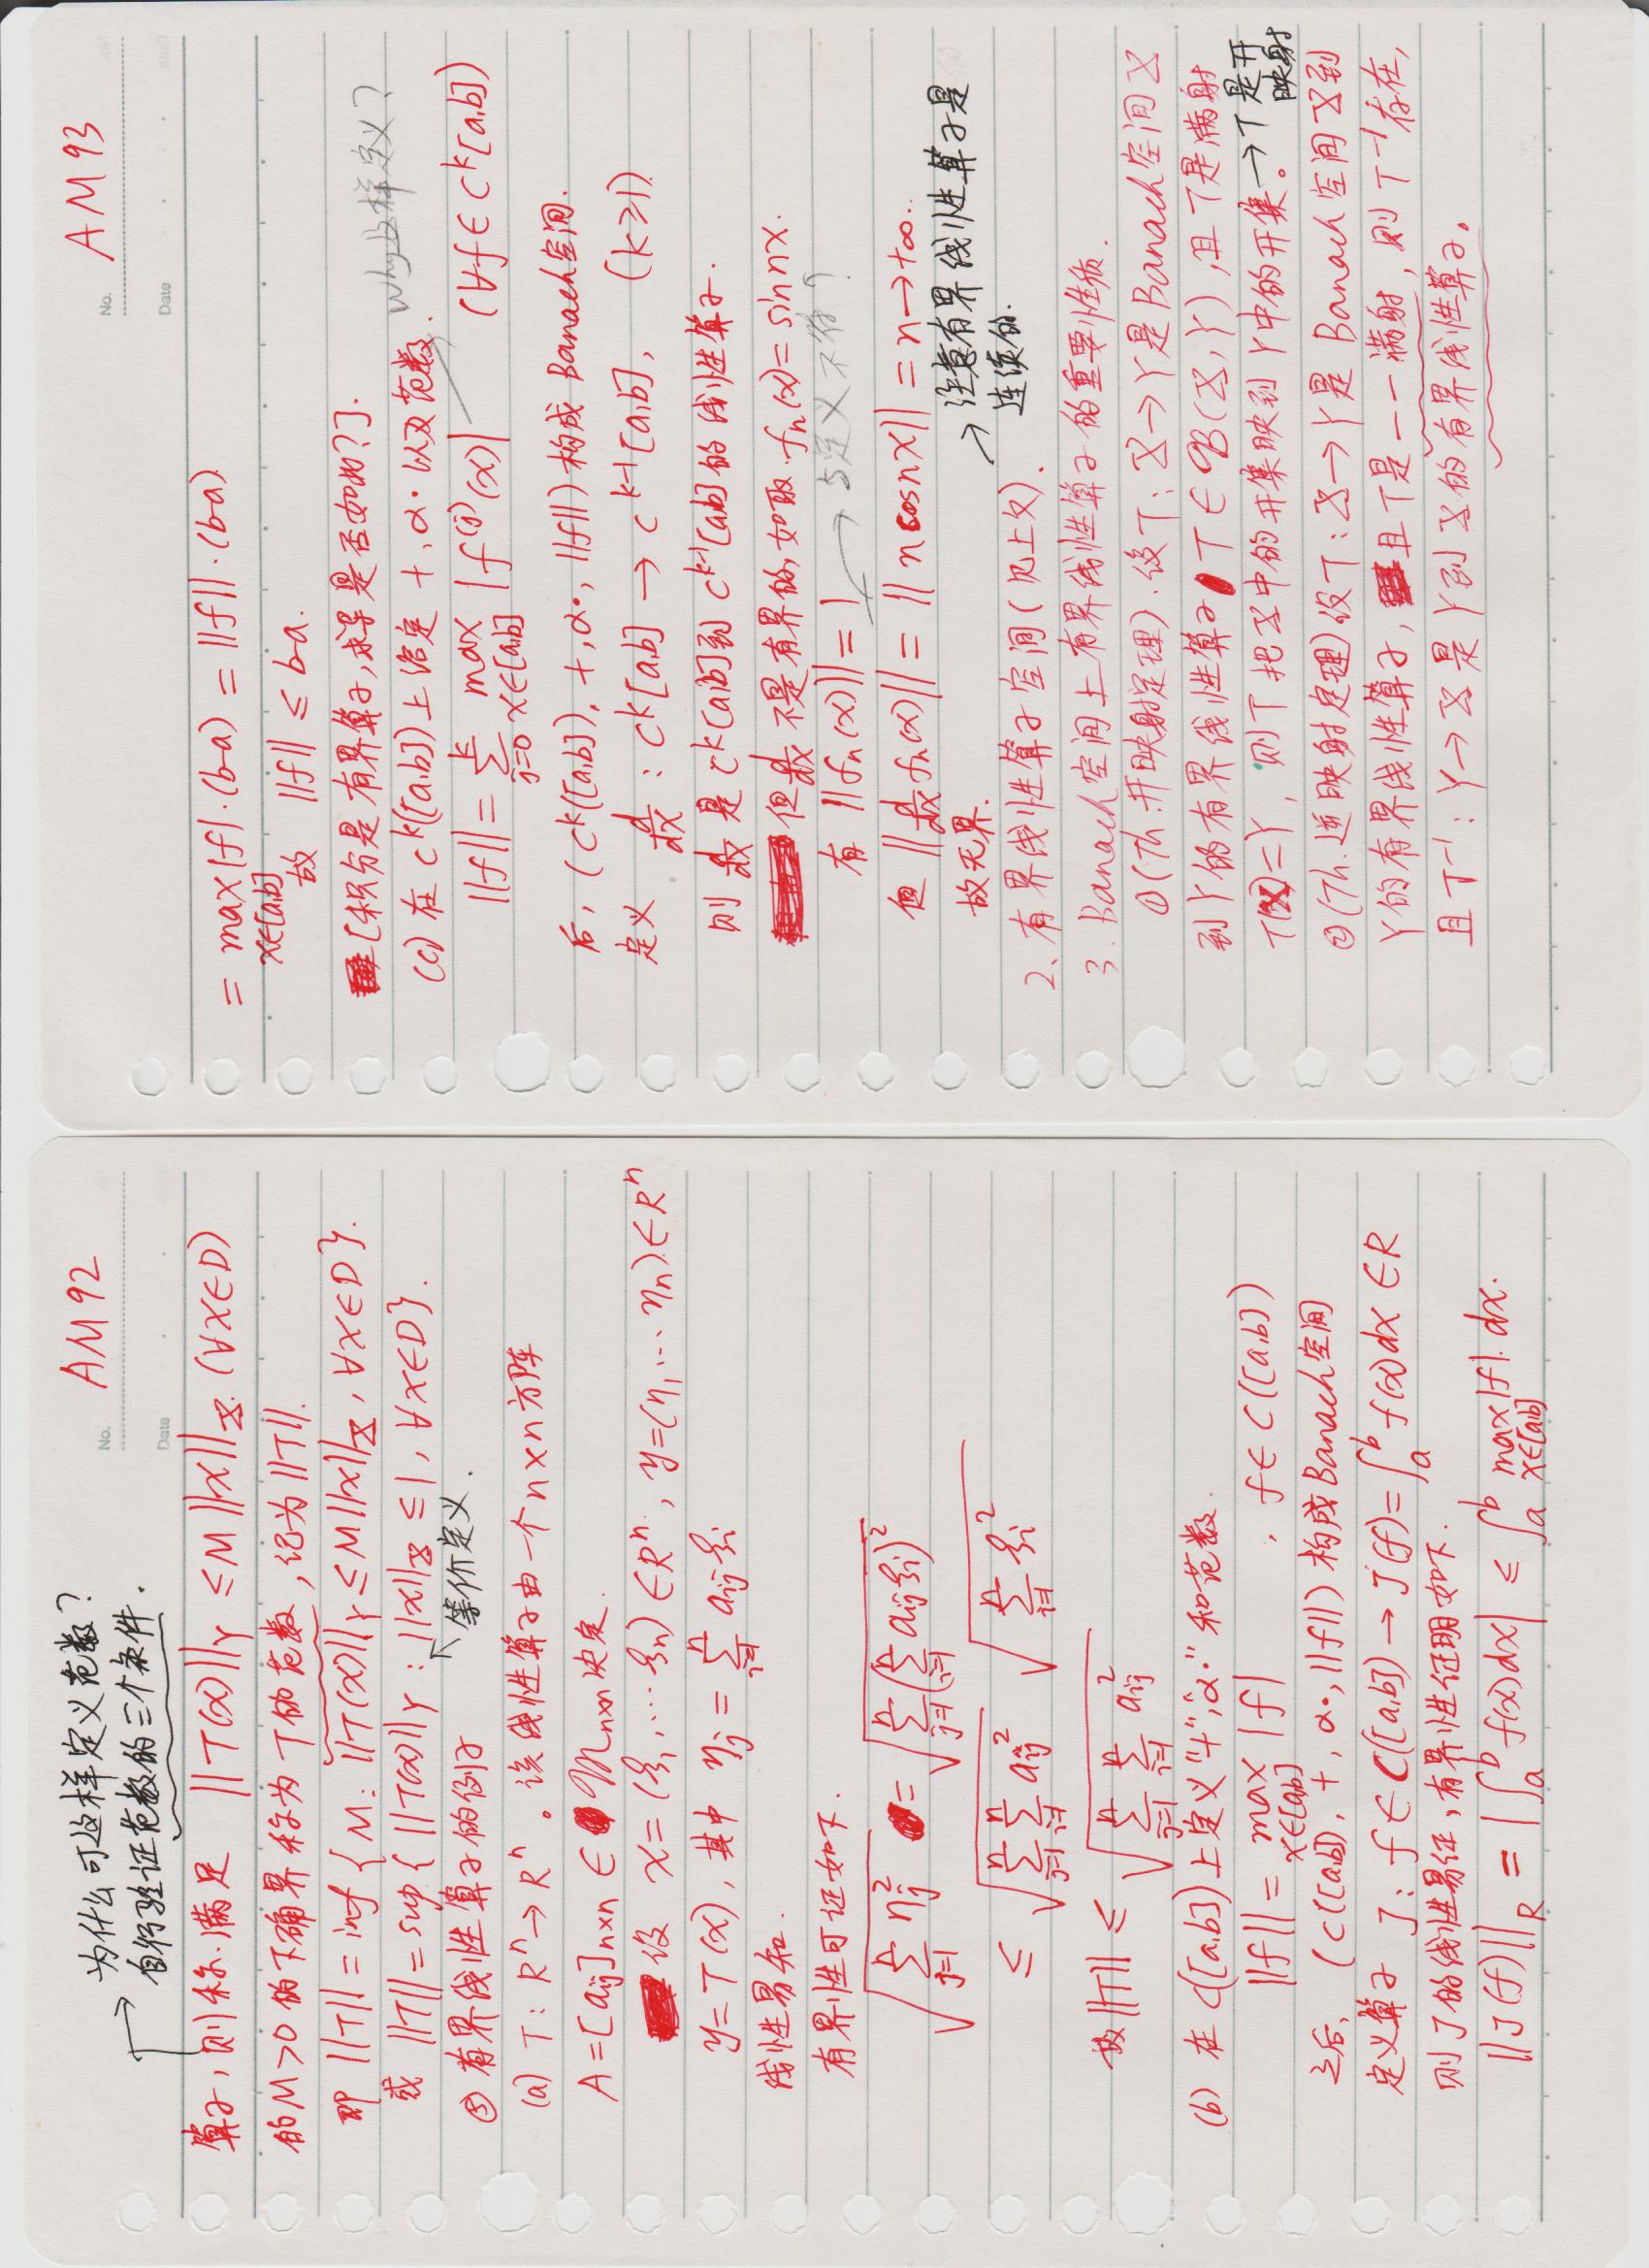 为什么可这样定义范数?
自行验证范数的三个条件.
No. AM 92
Date
算子,则称.满足 ||T(x)||_Y ≤ M||x||_X. (∀x∈D)
的M>0 的下确界称为 T的范数,记为||T||.
即 ||T|| = inf { M: ||T(x)||_Y ≤ M||x||_X, ∀x∈D}.
或 ||T|| = sup{ ||T(x)||_Y : ||x||_X ≤ 1, ∀x∈D}.
等价定义.
⑤ 有界线性算子的例子
(a) T: R^n → R^n 。该线性算子由一个n×n方阵
A=[a_ij]_{n×n} ∈ M_{n×n} 决定.
设 x=(ξ_1,…ξ_n)∈R^n, y=(η_1,…η_n)∈R^n
y=T(x), 其中 η_j = ∑_{i=1}^n a_ij ξ_i
线性易知.
有界性可证如下.
√(∑_{j=1}^n η_j^2) = √(∑_{j=1}^n (∑_{i=1}^n a_ij ξ_i)^2)
≤ √(∑_{j=1}^n ∑_{i=1}^n a_ij^2) √(∑_{i=1}^n ξ_i^2)
故||T|| ≤ √(∑_{j=1}^n ∑_{i=1}^n a_ij^2)
(b) 在 C([a,b])上定义"+","α·"和范数.
||f|| = max_{x∈[a,b]} |f| , f∈C([a,b])
之后, (C([a,b]), +, α·, ||f||) 构成Banach空间
定义算子 J: f∈C([a,b]) → J(f)=∫_a^b f(x)dx ∈R
则J的线性易证,有界性证明如下.
||J(f)||_R = |∫_a^b f(x)dx| ≤ ∫_a^b max_{x∈[a,b]}|f|.dx.
No. AM 93
Date
= max_{x∈[a,b]}|f|·(b-a) = ||f||·(b-a)
故 ||f|| ≤ b-a.
[积分是有界算子,求导是否如此?].
Why这样定义?
(c) 在 C^k([a,b])上给定 +,α· 以及范数.
||f|| = ∑_{j=0}^k max_{x∈[a,b]} |f^(j)(x)| (∀f∈C^k[a,b])
后, (C^k([a,b]), +, α·, ||f||) 构成 Banach空间.
定义 d/dx : C^k[a,b] → C^{k-1}[a,b], (k≥1)
则 d/dx 是C^k[a,b]到 C^{k-1}[a,b]的线性算子.
但d/dx 不是有界的,如取.f_n(x)= sin nx.
有 ||f_n(x)|| = 1 → 与定义不符?
但 ||d/dx f_n(x)|| = || n cos nx|| = n → +∞.
故无界.
注意有界线性算子是
连续的.
2、有界线性算子空间(见上文).
3. Banach空间上有界线性算子的重要性质.
①(Th.开映射定理).设T: X→Y是Banach空间X
到Y的有界线性算子 T∈B(X,Y),且T是满射
T(X)=Y, 则T把X中的开集映到Y中的开集。→T是开
映射
②(Th.逆映射定理)设T:X→Y是Banach空间X到
Y的有界线性算子, 且T是一一满射, 则 T^{-1}存在,
且T^{-1}: Y→X 是Y到X的有界线性算子。